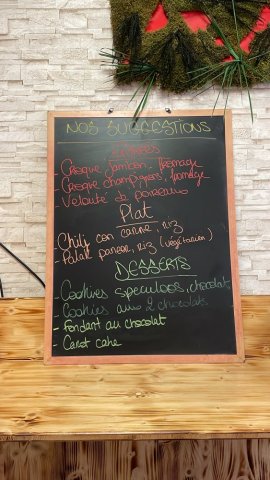 NOS SUGGESTIONS
ENTRÉES
- Croque jambon, fromage
- Croque champignons, fromage
- Velouté de poireaux
Plat
- Chili con carne, riz
- Palak paneer, riz (végétarien)
DESSERTS
- Cookies speculoos, chocolat
- Cookies aux 2 chocolats
- Fondant au chocolat
- Carot cake